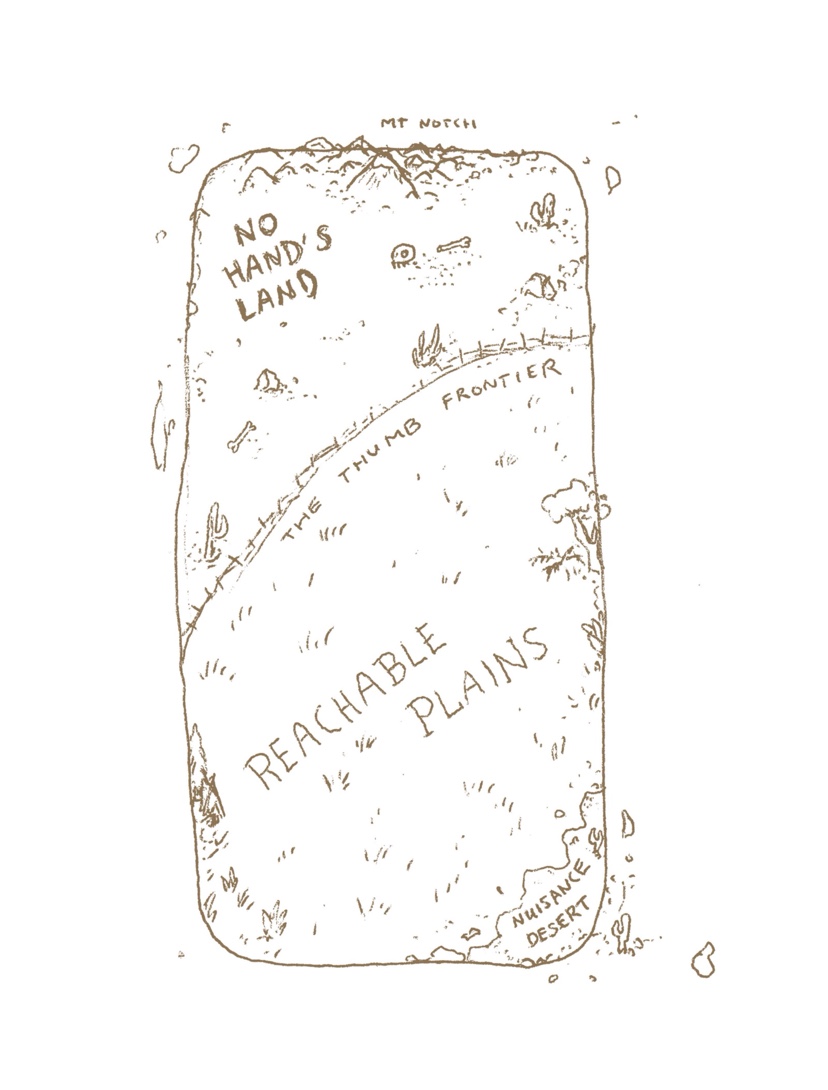 MT NOTCH
NO
HAND'S
LAND
THE THUMB FRONTIER
REACHABLE
PLAINS
NUISANCE
DESERT